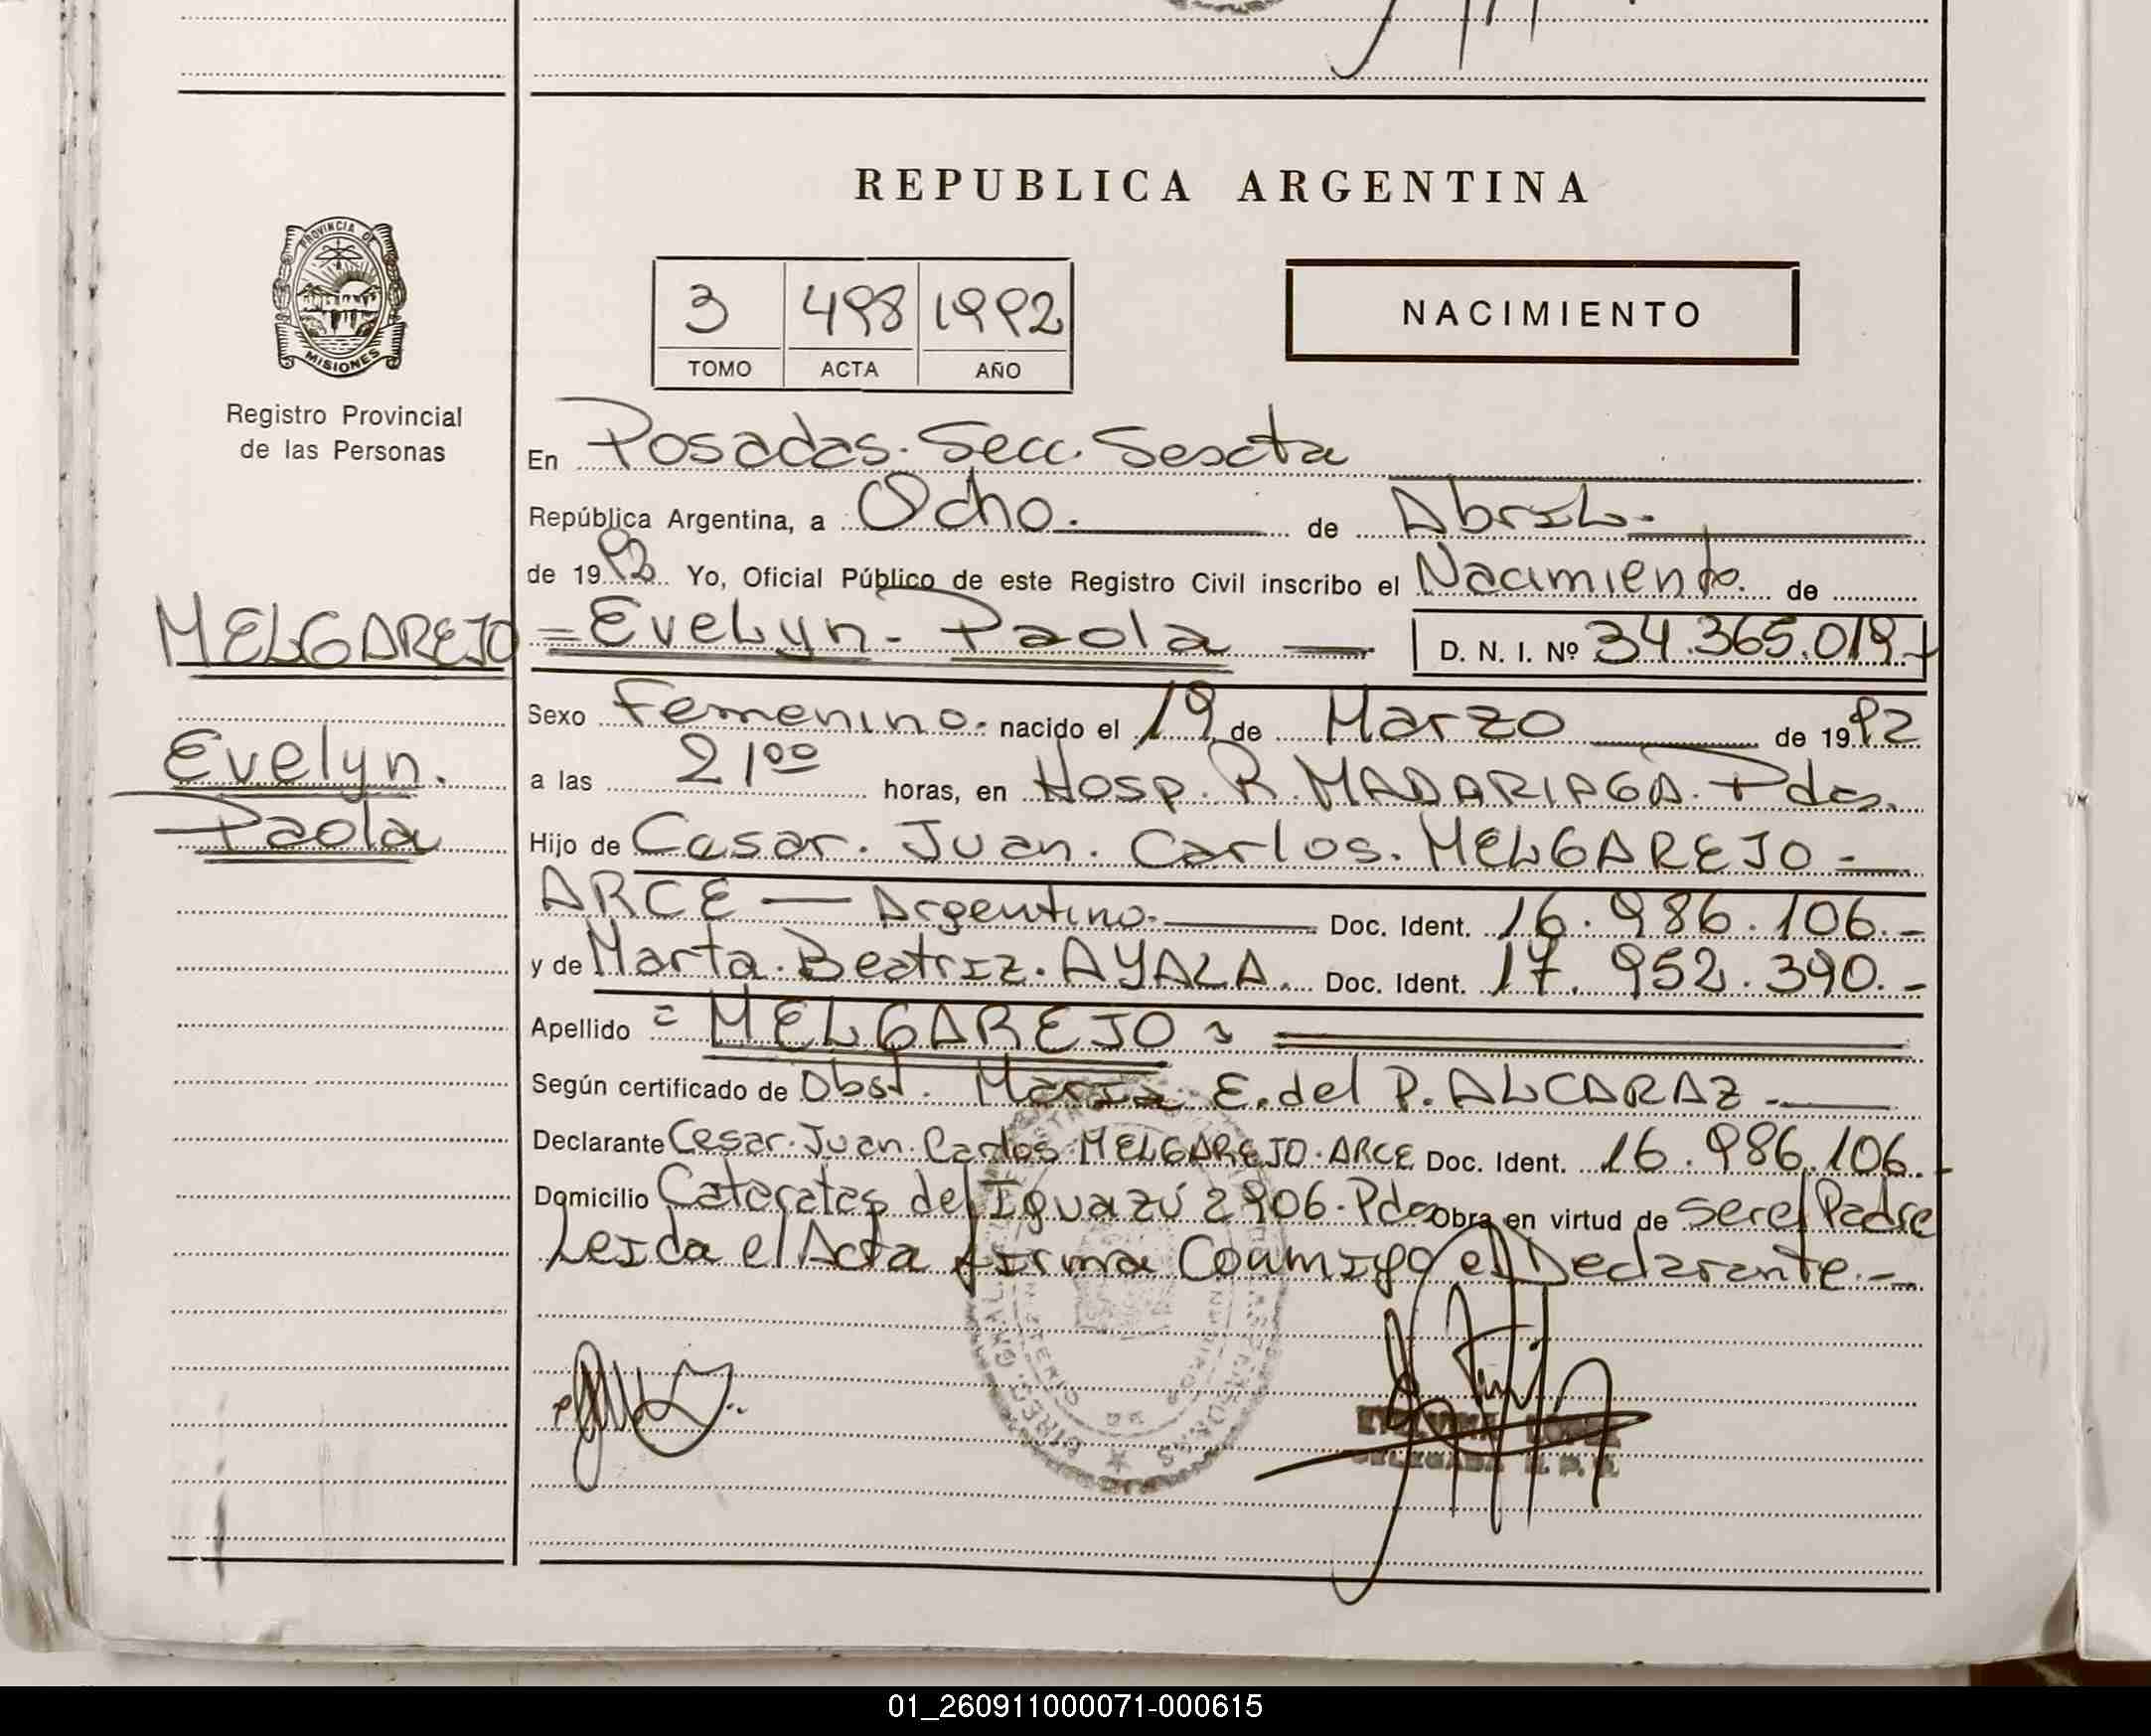 REPUBLICA ARGENTINA
PROVINCIA DE
MISIONES
Registro Provincial
de las Personas
3 498 1992
TOMO ACTA AÑO
NACIMIENTO
En Posadas. Secc. Sescta
República Argentina, a Ocho. de Abril.
de 1992 Yo, Oficial Público de este Registro Civil inscribo el Nacimiento. de
MELGAREJO
= Evelyn - Paola — D. N. I. Nº 34.365.019.-
Sexo Femenino. nacido el 19 de Marzo de 1992
Evelyn.
Paola
a las 21 00 horas, en Hosp. R. MADARIAGA. Pdas.
Hijo de Cesar. Juan. Carlos. MELGAREJO -
ARCE — Argentino. Doc. Ident. 16.986.106.-
y de Marta. Beatriz. AYALA. Doc. Ident. 17.952.390.-
Apellido = MELGAREJO =
Según certificado de Obst. Maria E. del P. ALCARAZ -
Declarante Cesar. Juan. Carlos. MELGAREJO. ARCE Doc. Ident. 16.986.106.-
Domicilio Cataratas del Iguazú 2906. Pdas Obra en virtud de ser el Padre
Leida el Acta firma Conmigo el Declarante.-
01_260911000071-000615